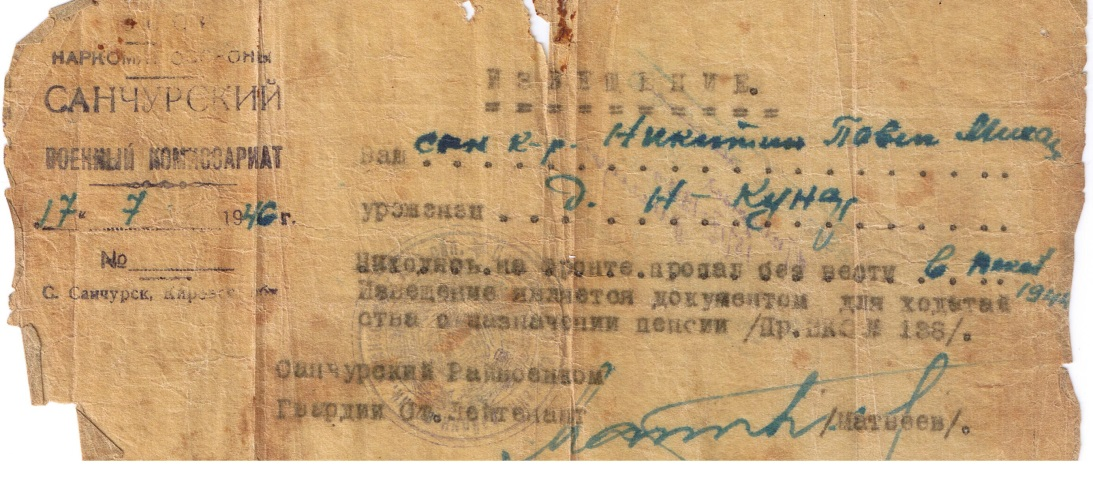 НАРКОМАТ ОБОРОНЫ
САНЧУРСКИЙ
ВОЕННЫЙ КОМИССАРИАТ
17 " 7 1946 г.
№
С. Санчурск, Кировск. обл.
ИЗВЕЩЕНИЕ.
Ваш сын к-р. Никитин Павел Михаи
уроженец д. Н-
Находясь на фронте пропал без вести в
194
Извещение является документом для ходатай
ства о назначении пенсии /Пр.НКО № 138/.
Санчурский Райвоенком
Гвардии Ст. Лейтенант /Матвеев/.